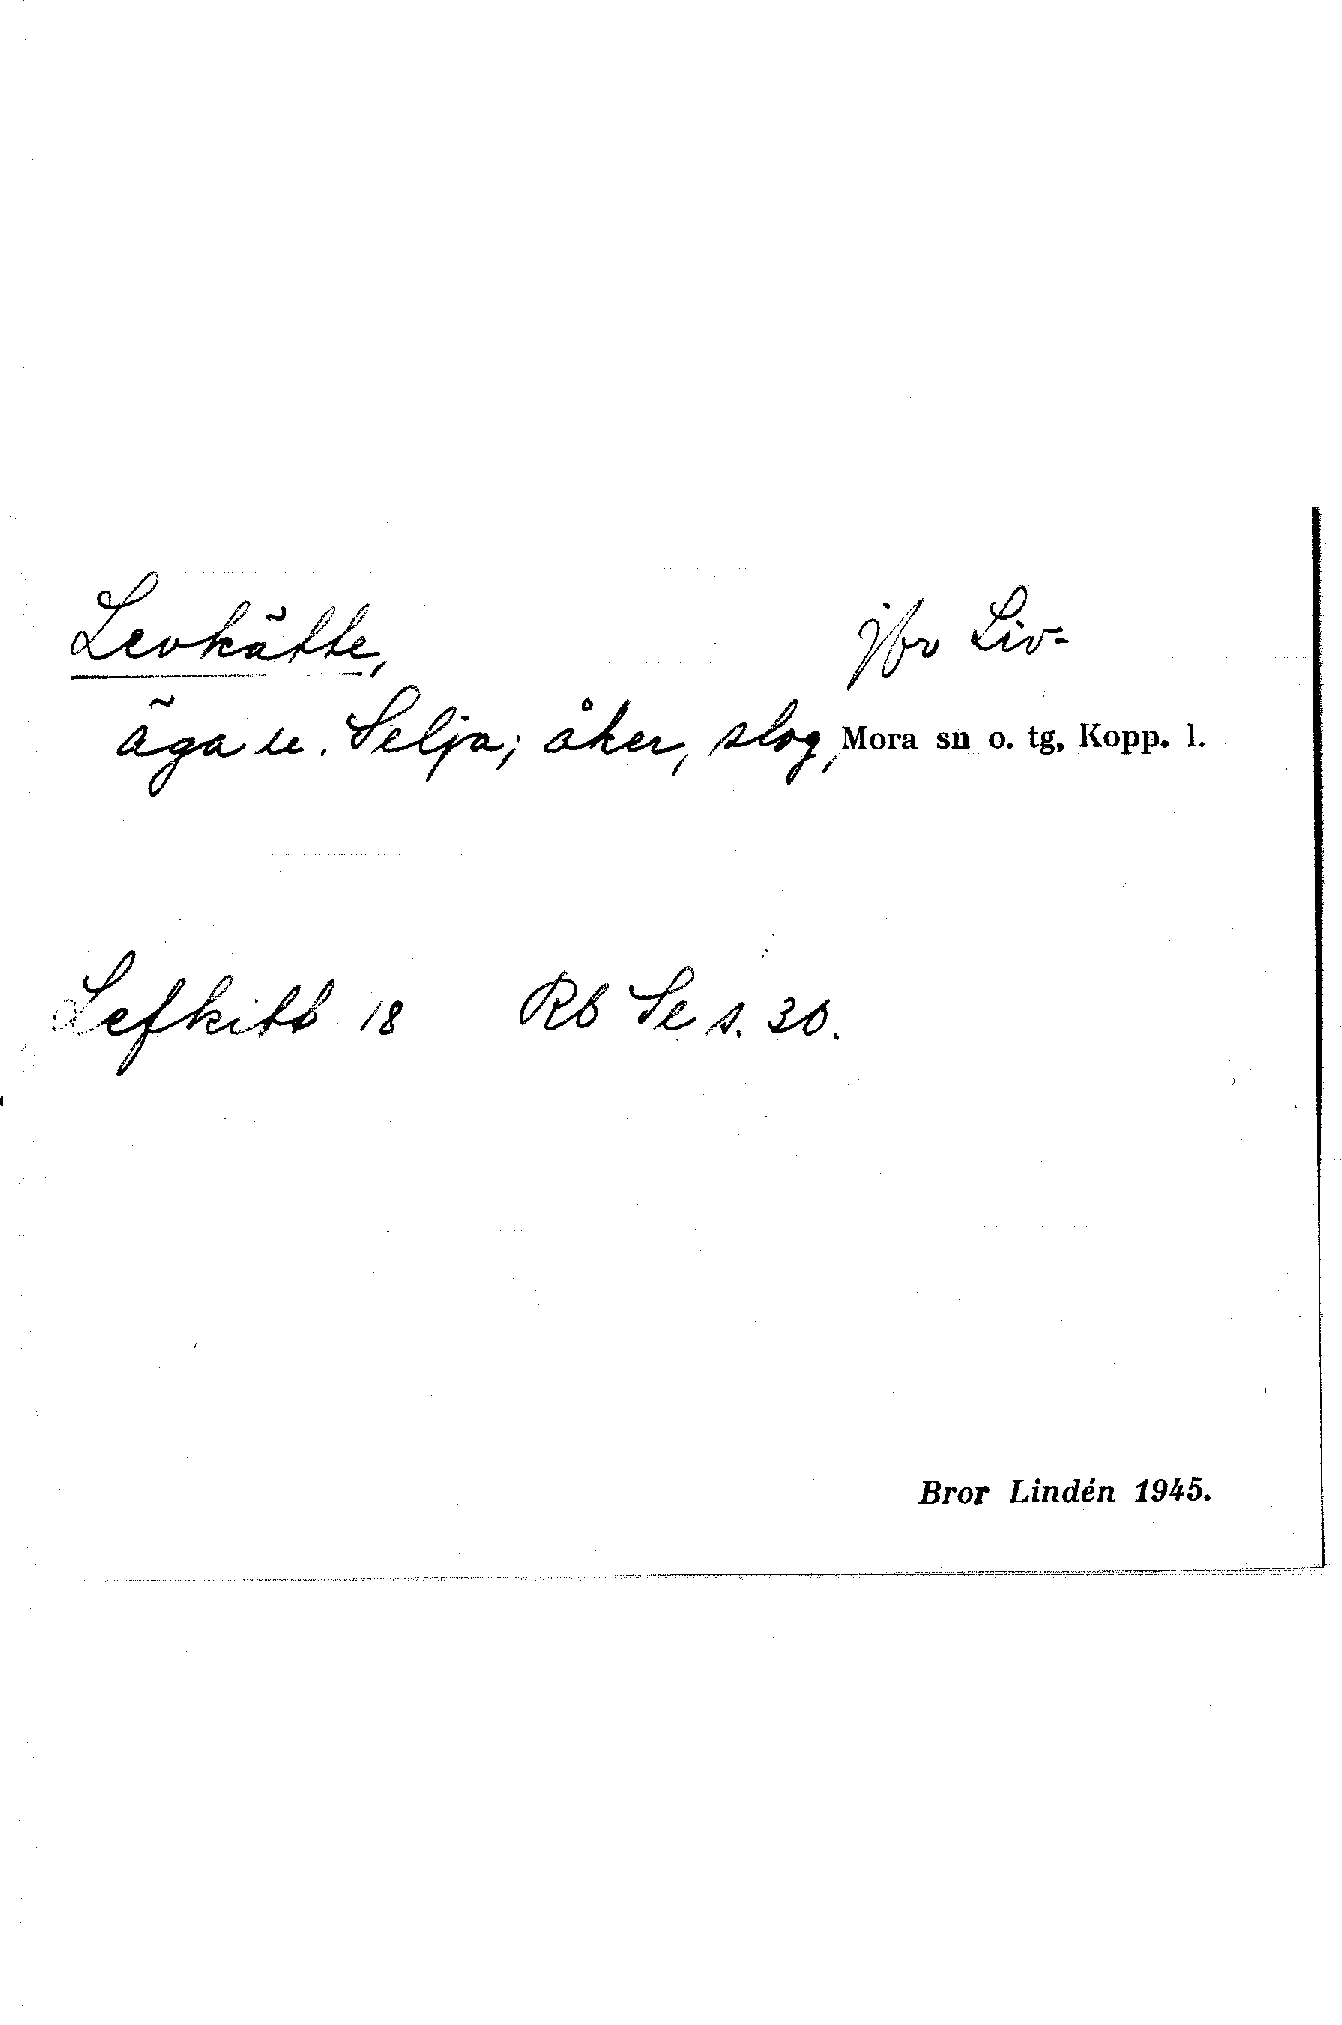 Levkätte, jfr Liv-
äga u. Selja; åker, slog, Mora sn o. tg, Kopp. l.
Lefkitt 18 Rb Se s. 30.
Bror Lindén 1945.